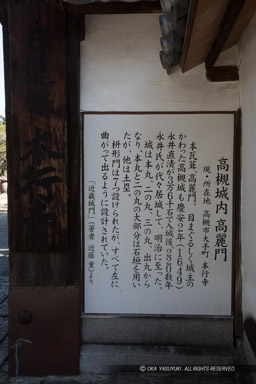 高槻城内 高麗門
現・所在地 高槻市大手町 本行寺
本瓦葺、高麗門。目まぐるしく城主の
かわった高槻城も慶安2年(1649)
永井直清が3万6千石で入城後、230数年
永井氏が代々居城して、明治に至った。
城は本丸、二の丸、三の丸、出丸から
なり、本丸と二の丸の大部分は石垣を用い
たが、他は土塁。
枡形門は7つ設けられたが、すべて左に
曲がって出るように設計されていた。
「近畿城門」(著者 近藤 薫)より
本行寺
© OKA YASUYUKI. ALL RIGHTS RESERVED.